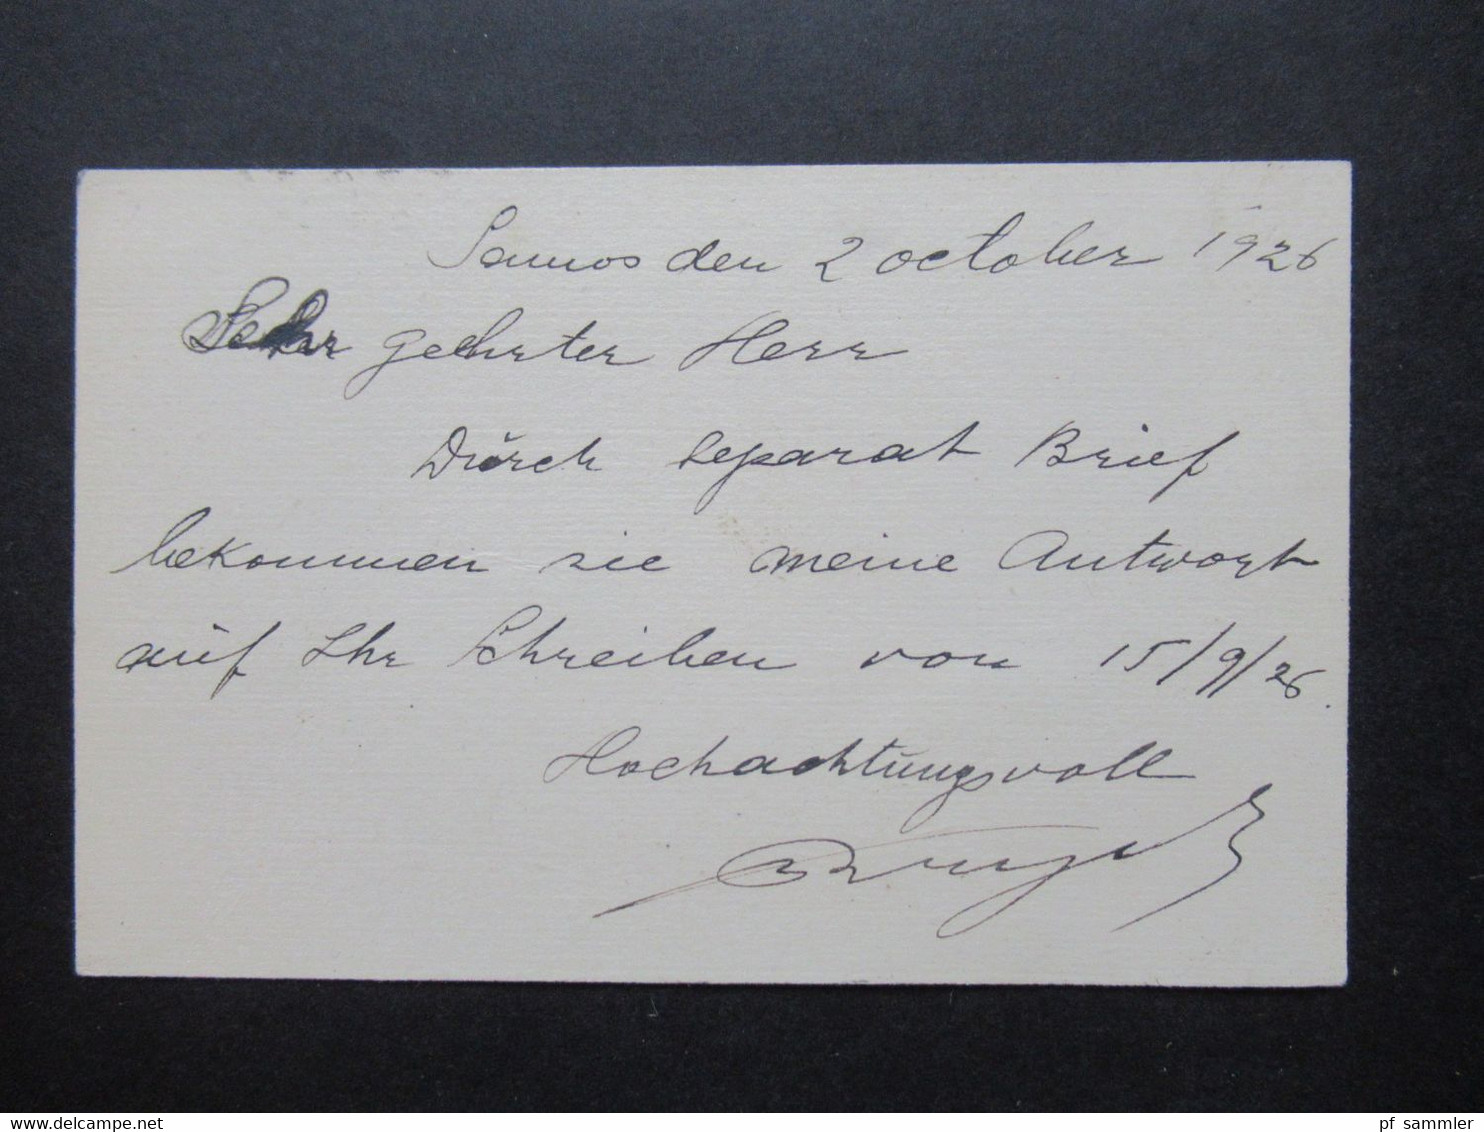 Samos den 2 october 1926
Sehr geehrter Herr
Dŭrch separat Brief
bekommen sie meine Antwort
aŭf Ihr Schreiben von 15/9/26.
Hochachtŭngsvoll
www.delcampe.net
pf_sammler